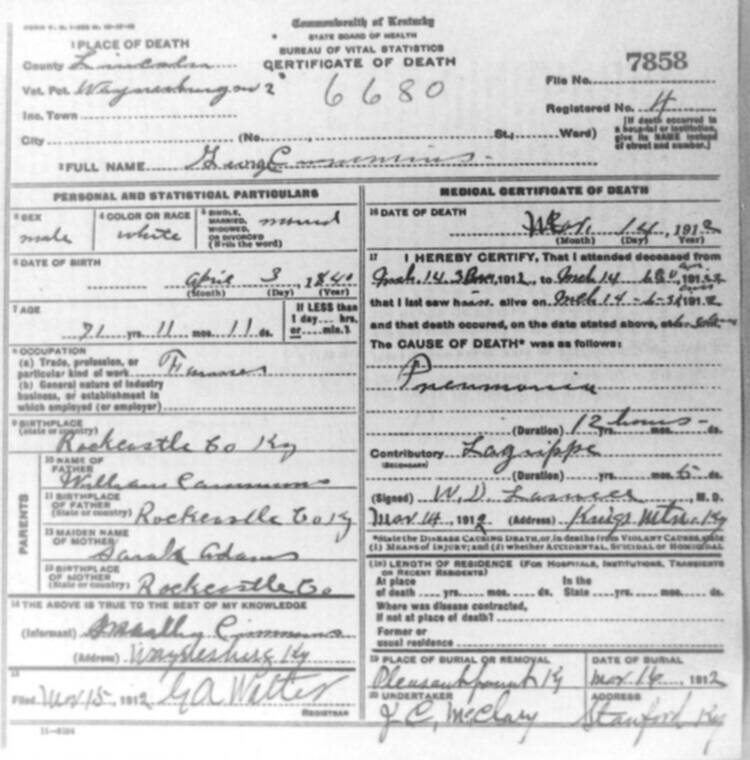 Commonwealth of Kentucky
STATE BOARD OF HEALTH
BUREAU OF VITAL STATISTICS
CERTIFICATE OF DEATH
1 PLACE OF DEATH
County Lincoln
Vot. Pct. Waynesburg no 2
6680
7858
File No.
Registered No. 4
Inc. Town
[If death occurred in a hospital or institution, give its NAME instead of street and number.]
City (No. St.; Ward)
2 FULL NAME George Cummins
PERSONAL AND STATISTICAL PARTICULARS
3 SEX male
4 COLOR OR RACE white
5 SINGLE, MARRIED, WIDOWED, OR DIVORCED (Write the word)
6 DATE OF BIRTH
April 3, 1840
(Month) (Day) (Year)
7 AGE
71 yrs. 11 mos. 11 ds.
If LESS than 1 day.... hrs. or.... min.?
8 OCCUPATION
(a) Trade, profession, or particular kind of work Farmer
(b) General nature of industry business, or establishment in which employed (or employer)
9 BIRTHPLACE (State or country)
Rockcastle Co Ky
PARENTS
10 NAME OF FATHER
William Cummins
11 BIRTHPLACE OF FATHER (State or country) Rockcastle Co Ky
12 MAIDEN NAME OF MOTHER
Sarah Adams
13 BIRTHPLACE OF MOTHER (State or country) Rockcastle Co
14 THE ABOVE IS TRUE TO THE BEST OF MY KNOWLEDGE
(Informant) Cummins
(Address) Waynesburg Ky
15
Filed Mar 15, 1912 G A
REGISTRAR
MEDICAL CERTIFICATE OF DEATH
16 DATE OF DEATH
Mar. 14, 1912
(Month) (Day) (Year)
17 I HEREBY CERTIFY, That I attended deceased from
Mch. 14, 1912, to Mch 14
that I last saw him alive on Mch 14
and that death occured, on the date stated above, at
The CAUSE OF DEATH* was as follows:
Pneumonia
12 hours
(Duration) yrs. mos. ds.
Contributory Lagrippe
(SECONDARY)
(Duration) yrs. mos. 5 ds.
(Signed) W. D. M. D.
Mar 14, 1912 (Address) Kings Mtn. Ky
*State the DISEASE CAUSING DEATH, or, in deaths from VIOLENT CAUSES, state
(1) MEANS OF INJURY; and (2) whether ACCIDENTAL, SUICIDAL or HOMICIDAL
(18) LENGTH OF RESIDENCE (FOR HOSPITALS, INSTITUTIONS, TRANSIENTS OR RECENT RESIDENTS)
At place of death yrs. mos. ds.
In the State yrs. mos. ds.
Where was disease contracted,
If not at place of death?
Former or
usual residence
19 PLACE OF BURIAL OR REMOVAL
Ky
DATE OF BURIAL
Mar. 16, 1912
20 UNDERTAKER
J C. McClary
ADDRESS
Stanford Ky